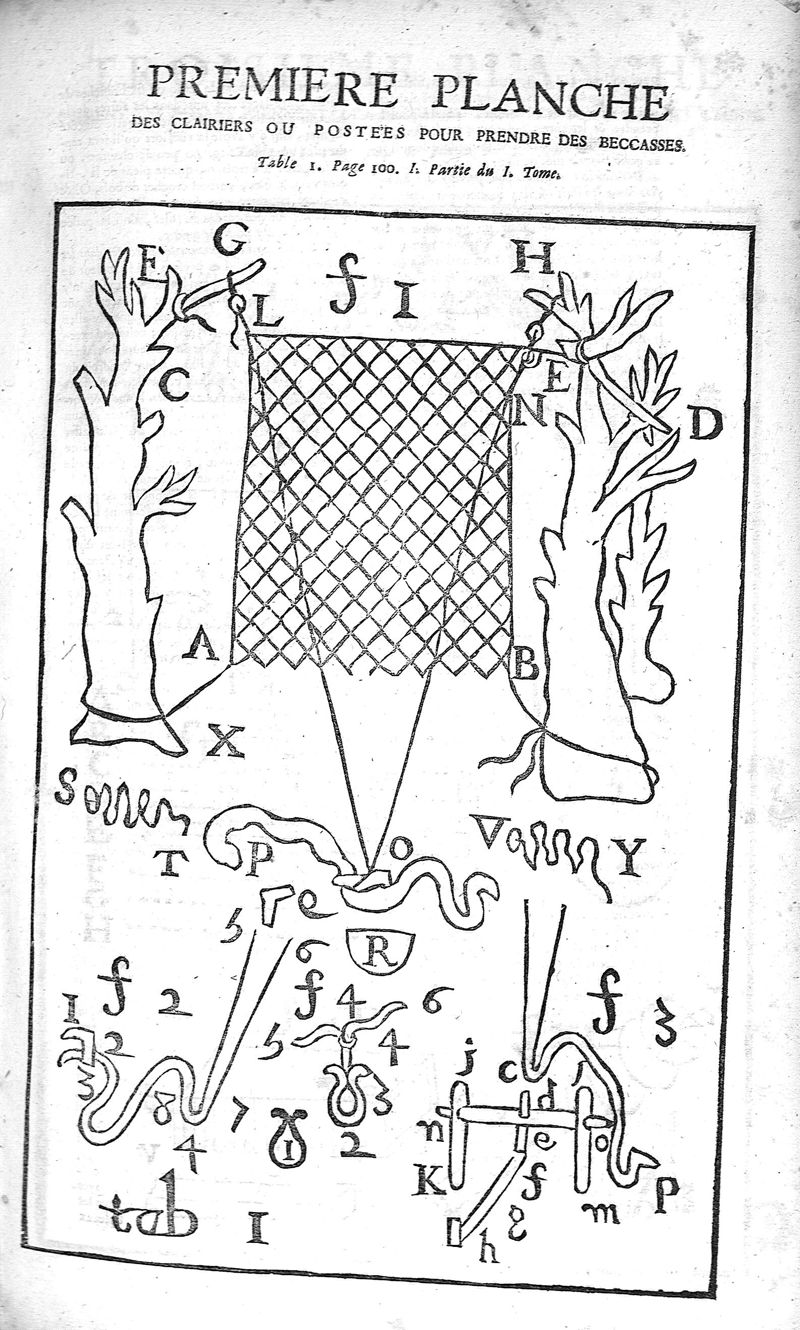 PREMIERE PLANCHE
DES CLAIRIERS OU POSTE'ES POUR PRENDRE DES BECCASSES.
Table 1. Page 100. I. Partie du I. Tome.
G
E
H
f I
L
C
E
N
D
A
B
X
S
T
P
O
V
Y
5
e
6
R
f
2
f
4
6
f
3
I
2
5
4
3
8
7
4
I
3
2
j
c
d
n
e
o
K
f
g
m
p
h
tab I